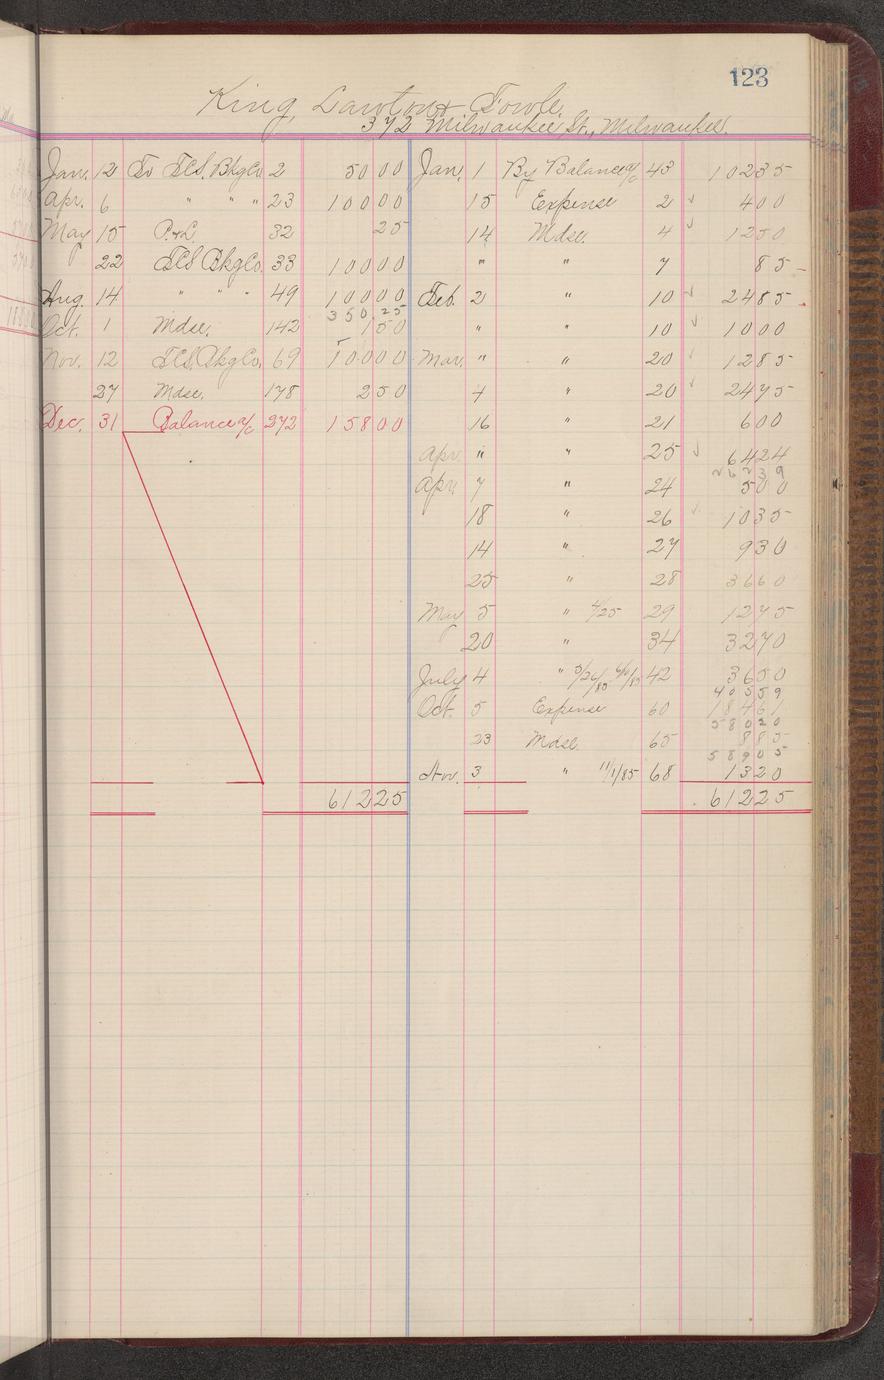 123
King, Lawton & Fowle.
372 Milwaukee St., Milwaukee.
Jan. 12 To F.C.S. Bkg Co 2 50 00
Apr. 6 " " " 23 100 00
May 15 P. & L. 32 25
22 F.C.S. Bkg Co. 33 100 00
Aug. 14 " " " 49 100 00
350.25
Oct. 1 Mdse. 142 1 50
Nov. 12 F.C.S. Bkg Co. 69 100 00
27 Mdse. 178 2 50
Dec. 31 Balance a/c 272 158 00
612 25
Jan. 1 By Balance a/c 43 102 35
15 Expense 2 ✓ 4 00
14 Mdse. 4 ✓ 12 50
" " 7 85
Feb. 2 " 10 ✓ 24 85
" " 10 ✓ 10 00
Mar. " " 20 ✓ 12 85
4 " 20 ✓ 24 75
16 " 21 6 00
Apr. " " 25 ✓ 64 24
262 39
Apr. 7 " 24 5 00
18 " 26 ✓ 10 35
14 " 27 9 30
25 " 28 36 60
May 5 " 4/25 29 12 75
20 " 34 32 70
July 4 " 5/26/85 6/10/85 42 36 50
405 59
Oct. 5 Expense 60 184 61
580 20
23 Mdse. 65 8 85
589 05
Nov. 3 " 11/1/85 68 13 20
612 25